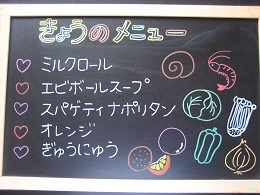 きょうのメニュー
ミルクロール
エビボールスープ
スパゲティナポリタン
オレンジ
ぎゅうにゅう